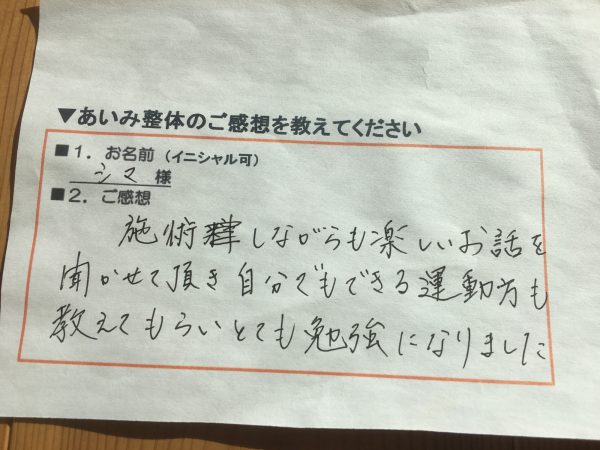 ▼あいみ整体のご感想を教えてください
■1．お名前（イニシャル可）
シマ 様
■2．ご感想
施術しながらも楽しいお話を
聞かせて頂き自分でもできる運動方も
教えてもらいとても勉強になりました